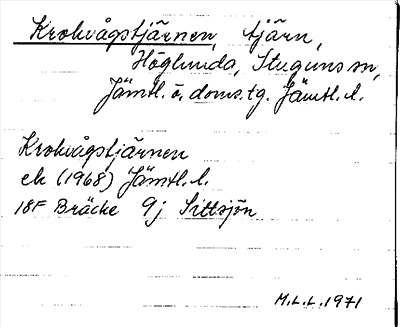 Krokvågstjärnen, tjärn,
Höglunda, Stuguns sn,
Jämtl. ö. doms.tg. Jämtl. l.
Krokvågstjärnen
ek (1968) Jämtl. l.
18F Bräcke 9j Sittsjön
M.L.L. 1971